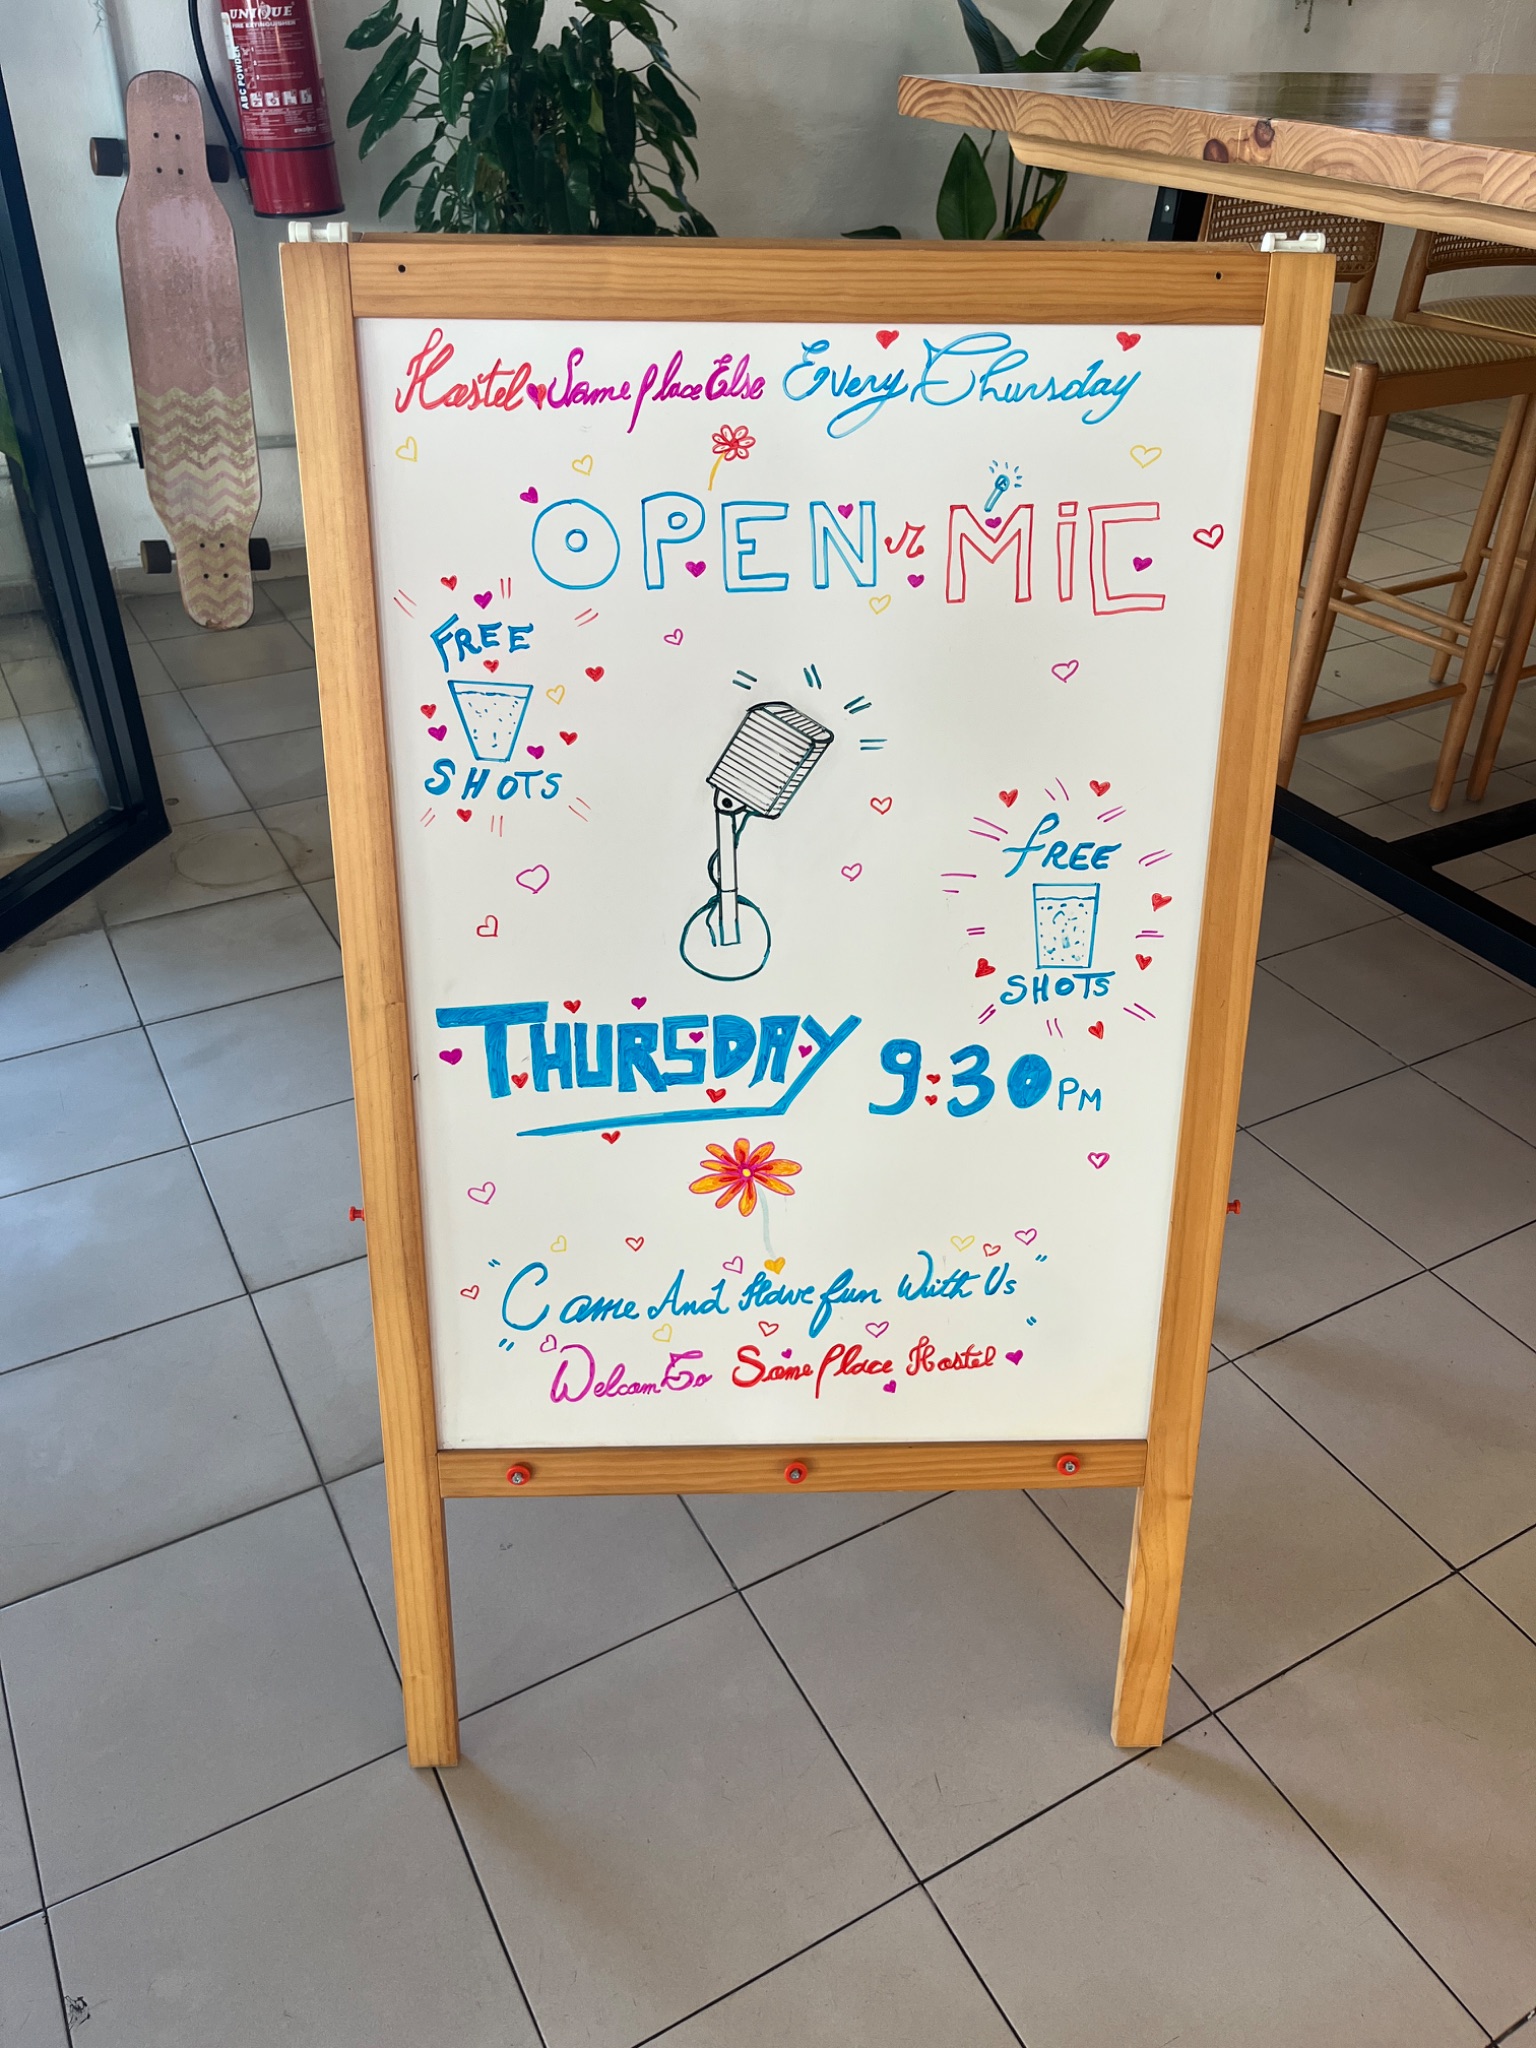 UNIQUE
FIRE EXTINGUISHER
ABC POWDER
Hostel Someplace Else Every Thursday
OPEN MiC
FREE
SHOTS
fREE
SHOTS
THURSDAY 9:30 PM
"Come And Have fun With Us"
" Welcom To Someplace Hostel "